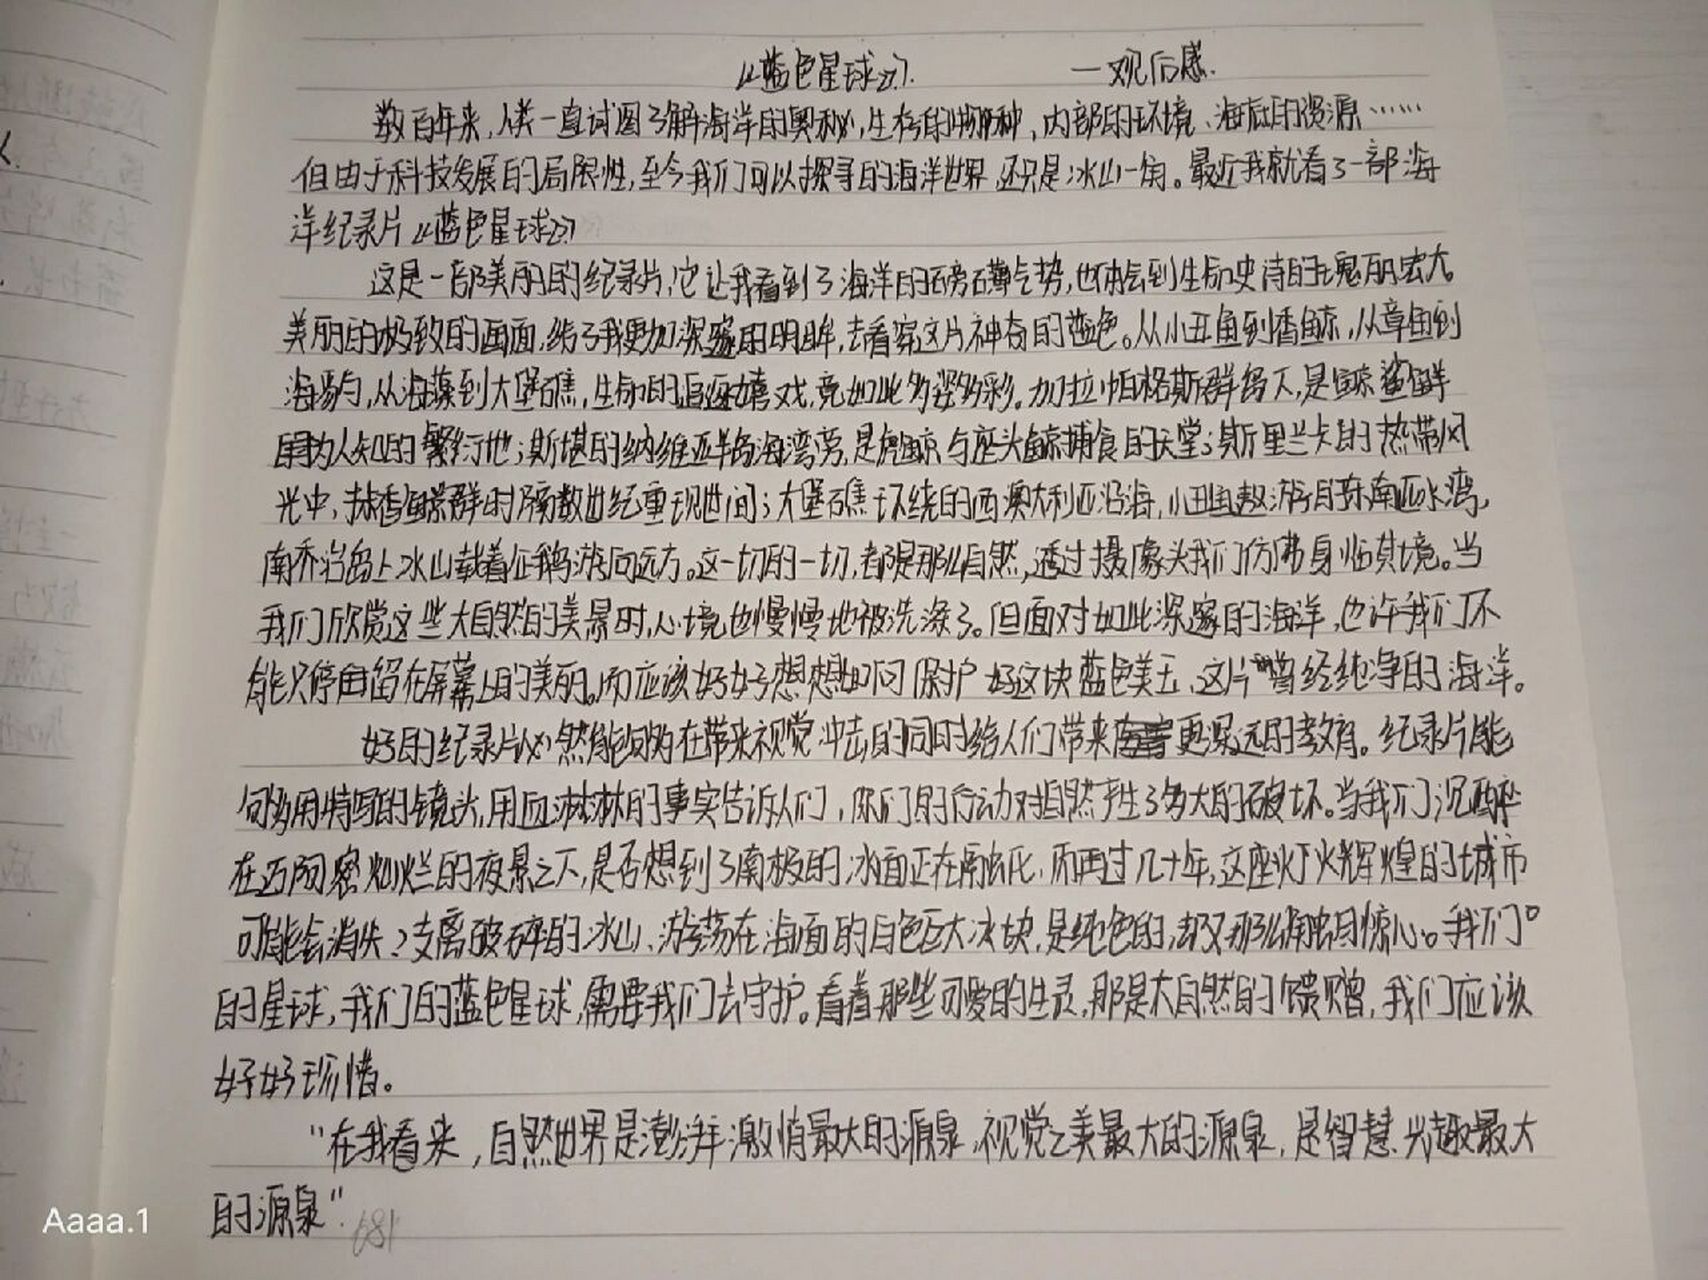 《蓝色星球》 一观后感.
数百年来,人类一直试图了解海洋的奥秘,生存的物种、内部的环境、海底的资源……
但由于科技发展的局限性,至今我们可以探寻的海洋世界还只是冰山一角。最近我就看了一部海
洋纪录片《蓝色星球》
这是一部美丽的纪录片,它让我看到了海洋的磅礴气势,也体会到生命史诗的瑰丽宏大。
美丽的极致的画面,给了我更加深邃的明眸,去看穿这片神奇的蓝色。从小丑鱼到香鲸,从章鱼到
海豹,从海藻到大堡礁,生命的追逐嬉戏,竟如此多姿多彩。加拉帕格斯群岛下,是鲸鲨鲜
用为人知的繁衍地;斯堪的纳维亚半岛海湾旁,是虎鲸与座头鲸捕食的天堂;斯里兰卡的热带风
光中,抹香鲸群时隔数世纪重现世间;大堡礁环绕的西澳大利亚沿海,小丑鱼遨游自东南亚水湾,
南乔治岛上冰山载着企鹅游向远方。这一切的一切,都是那么自然,透过摄像头我们仿佛身临其境。当
我们欣赏这些大自然的美景时,心境也慢慢地被洗涤了。但面对如此深邃的海洋,也许我们不
能只停留在屏幕上的美丽。而应该好好想想如何保护好这块蓝色美玉、这片曾经纯净的海洋。
好的纪录片必然能够在带来视觉冲击的同时给人们带来更深远的教育。纪录片能
够用特写的镜头,用血淋淋的事实告诉人们,你们的行动对自然产生了多大的破坏。当我们沉醉
在迈阿密灿烂的夜景之下,是否想到了南极的冰面正在融化,而再过几十年,这座灯火辉煌的城市
可能会消失?支离破碎的冰山、游荡在海面的白色巨大冰块,是纯色的,却又那么触目惊心。我们
的星球,我们的蓝色星球,需要我们去守护。看着那些可爱的生灵,那是大自然的馈赠,我们应该
好好珍惜。
"在我看来,自然世界是澎湃激情最大的源泉,视觉之美最大的源泉,是智慧、兴趣最大
的源泉".
681
Aaaa.1